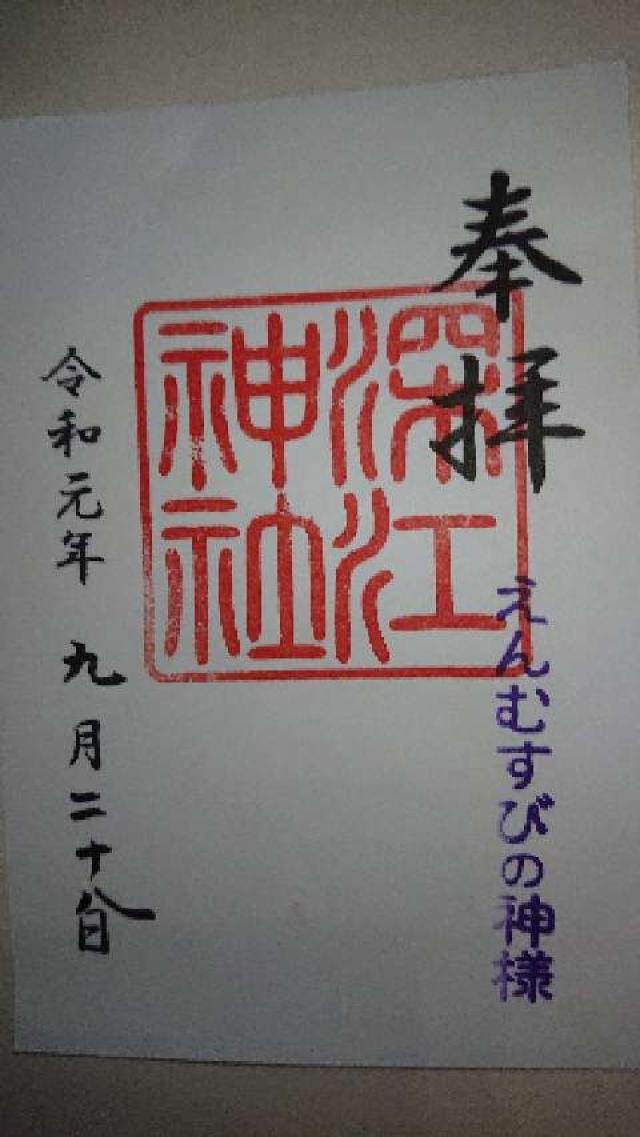 奉拝
えんむすびの神様
深江
神社
令和元年九月二十八日